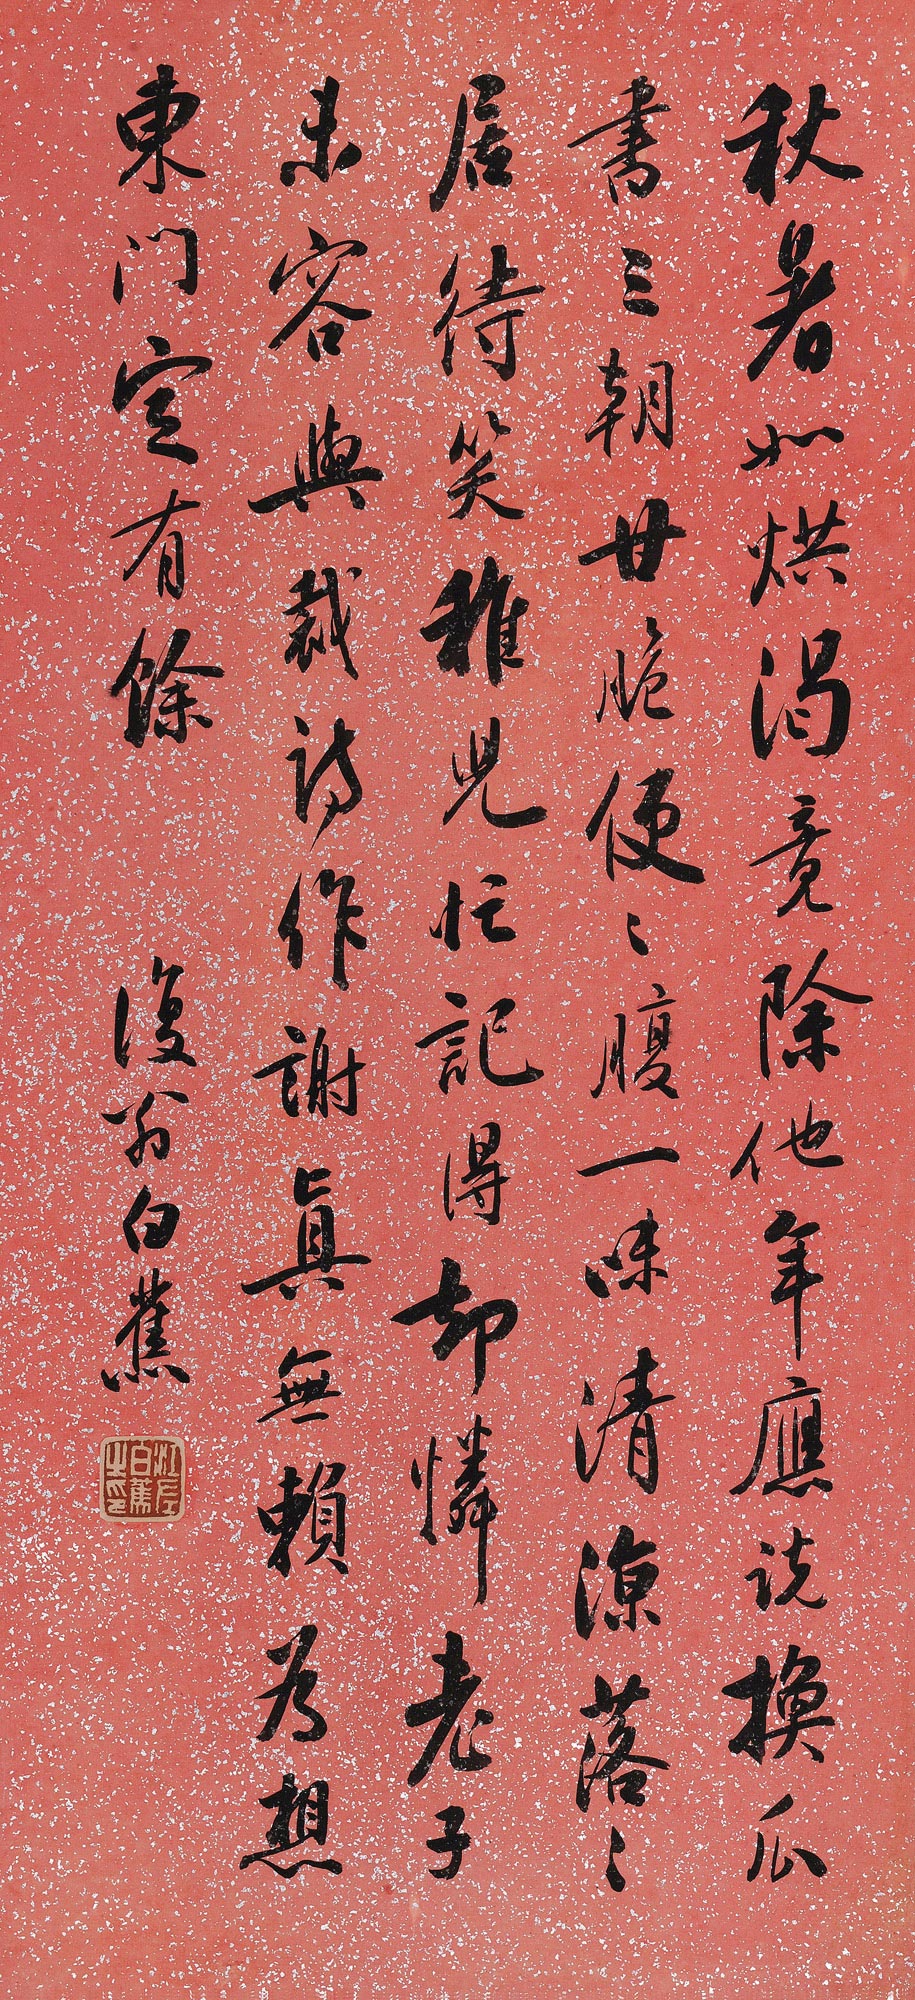 秋暑如烘渴竟除他年應説換瓜
書三朝甘脆便〻腹一味清涼落〻
居待笑稚兒忙記得却憐老子
未容與裁詩作謝真無賴為想
東門定有餘 復翁白蕉
江左白蕉之印